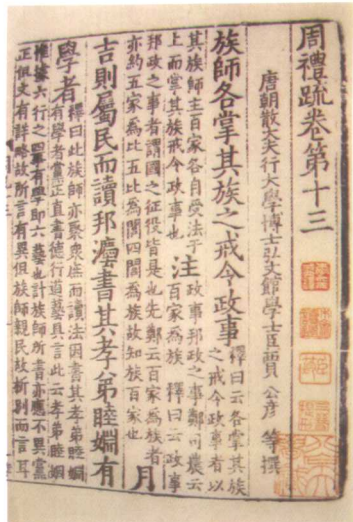 周禮疏卷第十三
唐朝散大夫行大學博士弘文館學士臣賈公彥等撰
族師各掌其族之戒令政事 釋曰云各掌其族
之戒令政事者以
其族師主百家各自受法于
上而掌其族戒令政事也 注 政事邦政之事鄭司農云
百家為族 釋曰云政事
邦政之事者謂國之征役皆是也先鄭云百家為族者
亦約五家為比五比為閭四閭為族故知族百家也 月
吉則屬民而讀邦灋書其孝弟睦婣有
學者 釋曰此族師亦聚衆庶而讀法因書其孝弟睦婣
有學者黨正直書德行道藝具言此云孝弟睦婣
惟據六行之四事有學即六藝也計族師所書亦應不異黨
正但文有詳略故所言有異但族師親民故析別而言耳